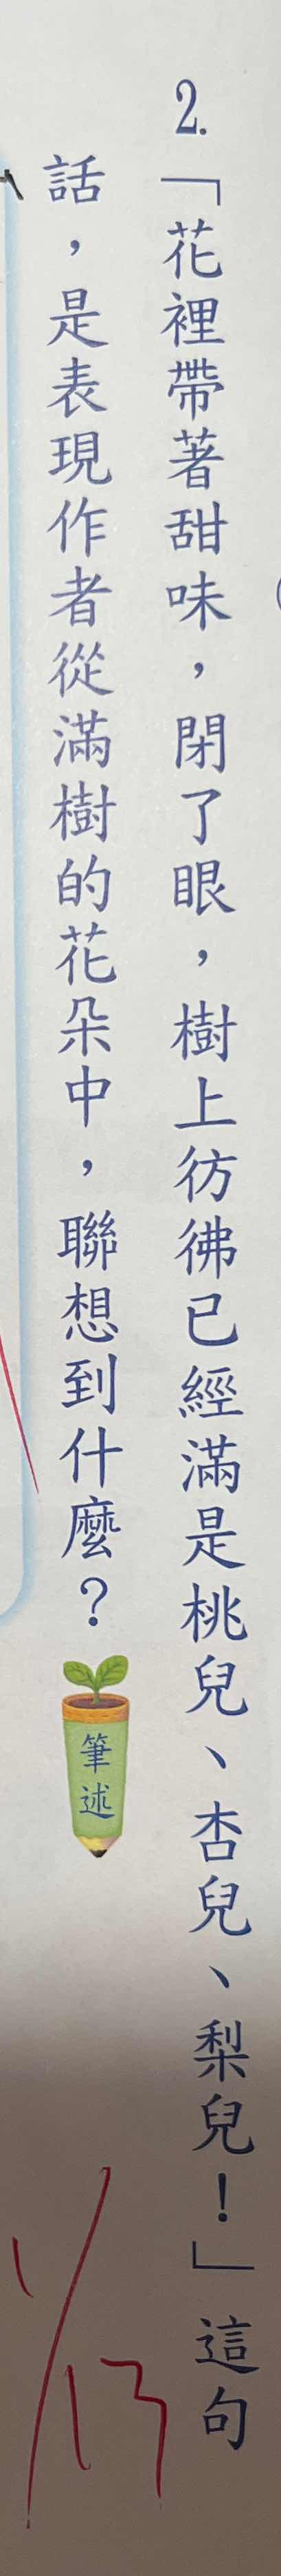 2.「花裡帶著甜味，閉了眼，樹上彷彿已經滿是桃兒、杏兒、梨兒！」這句
話，是表現作者從滿樹的花朵中，聯想到什麼？
筆述
1/13